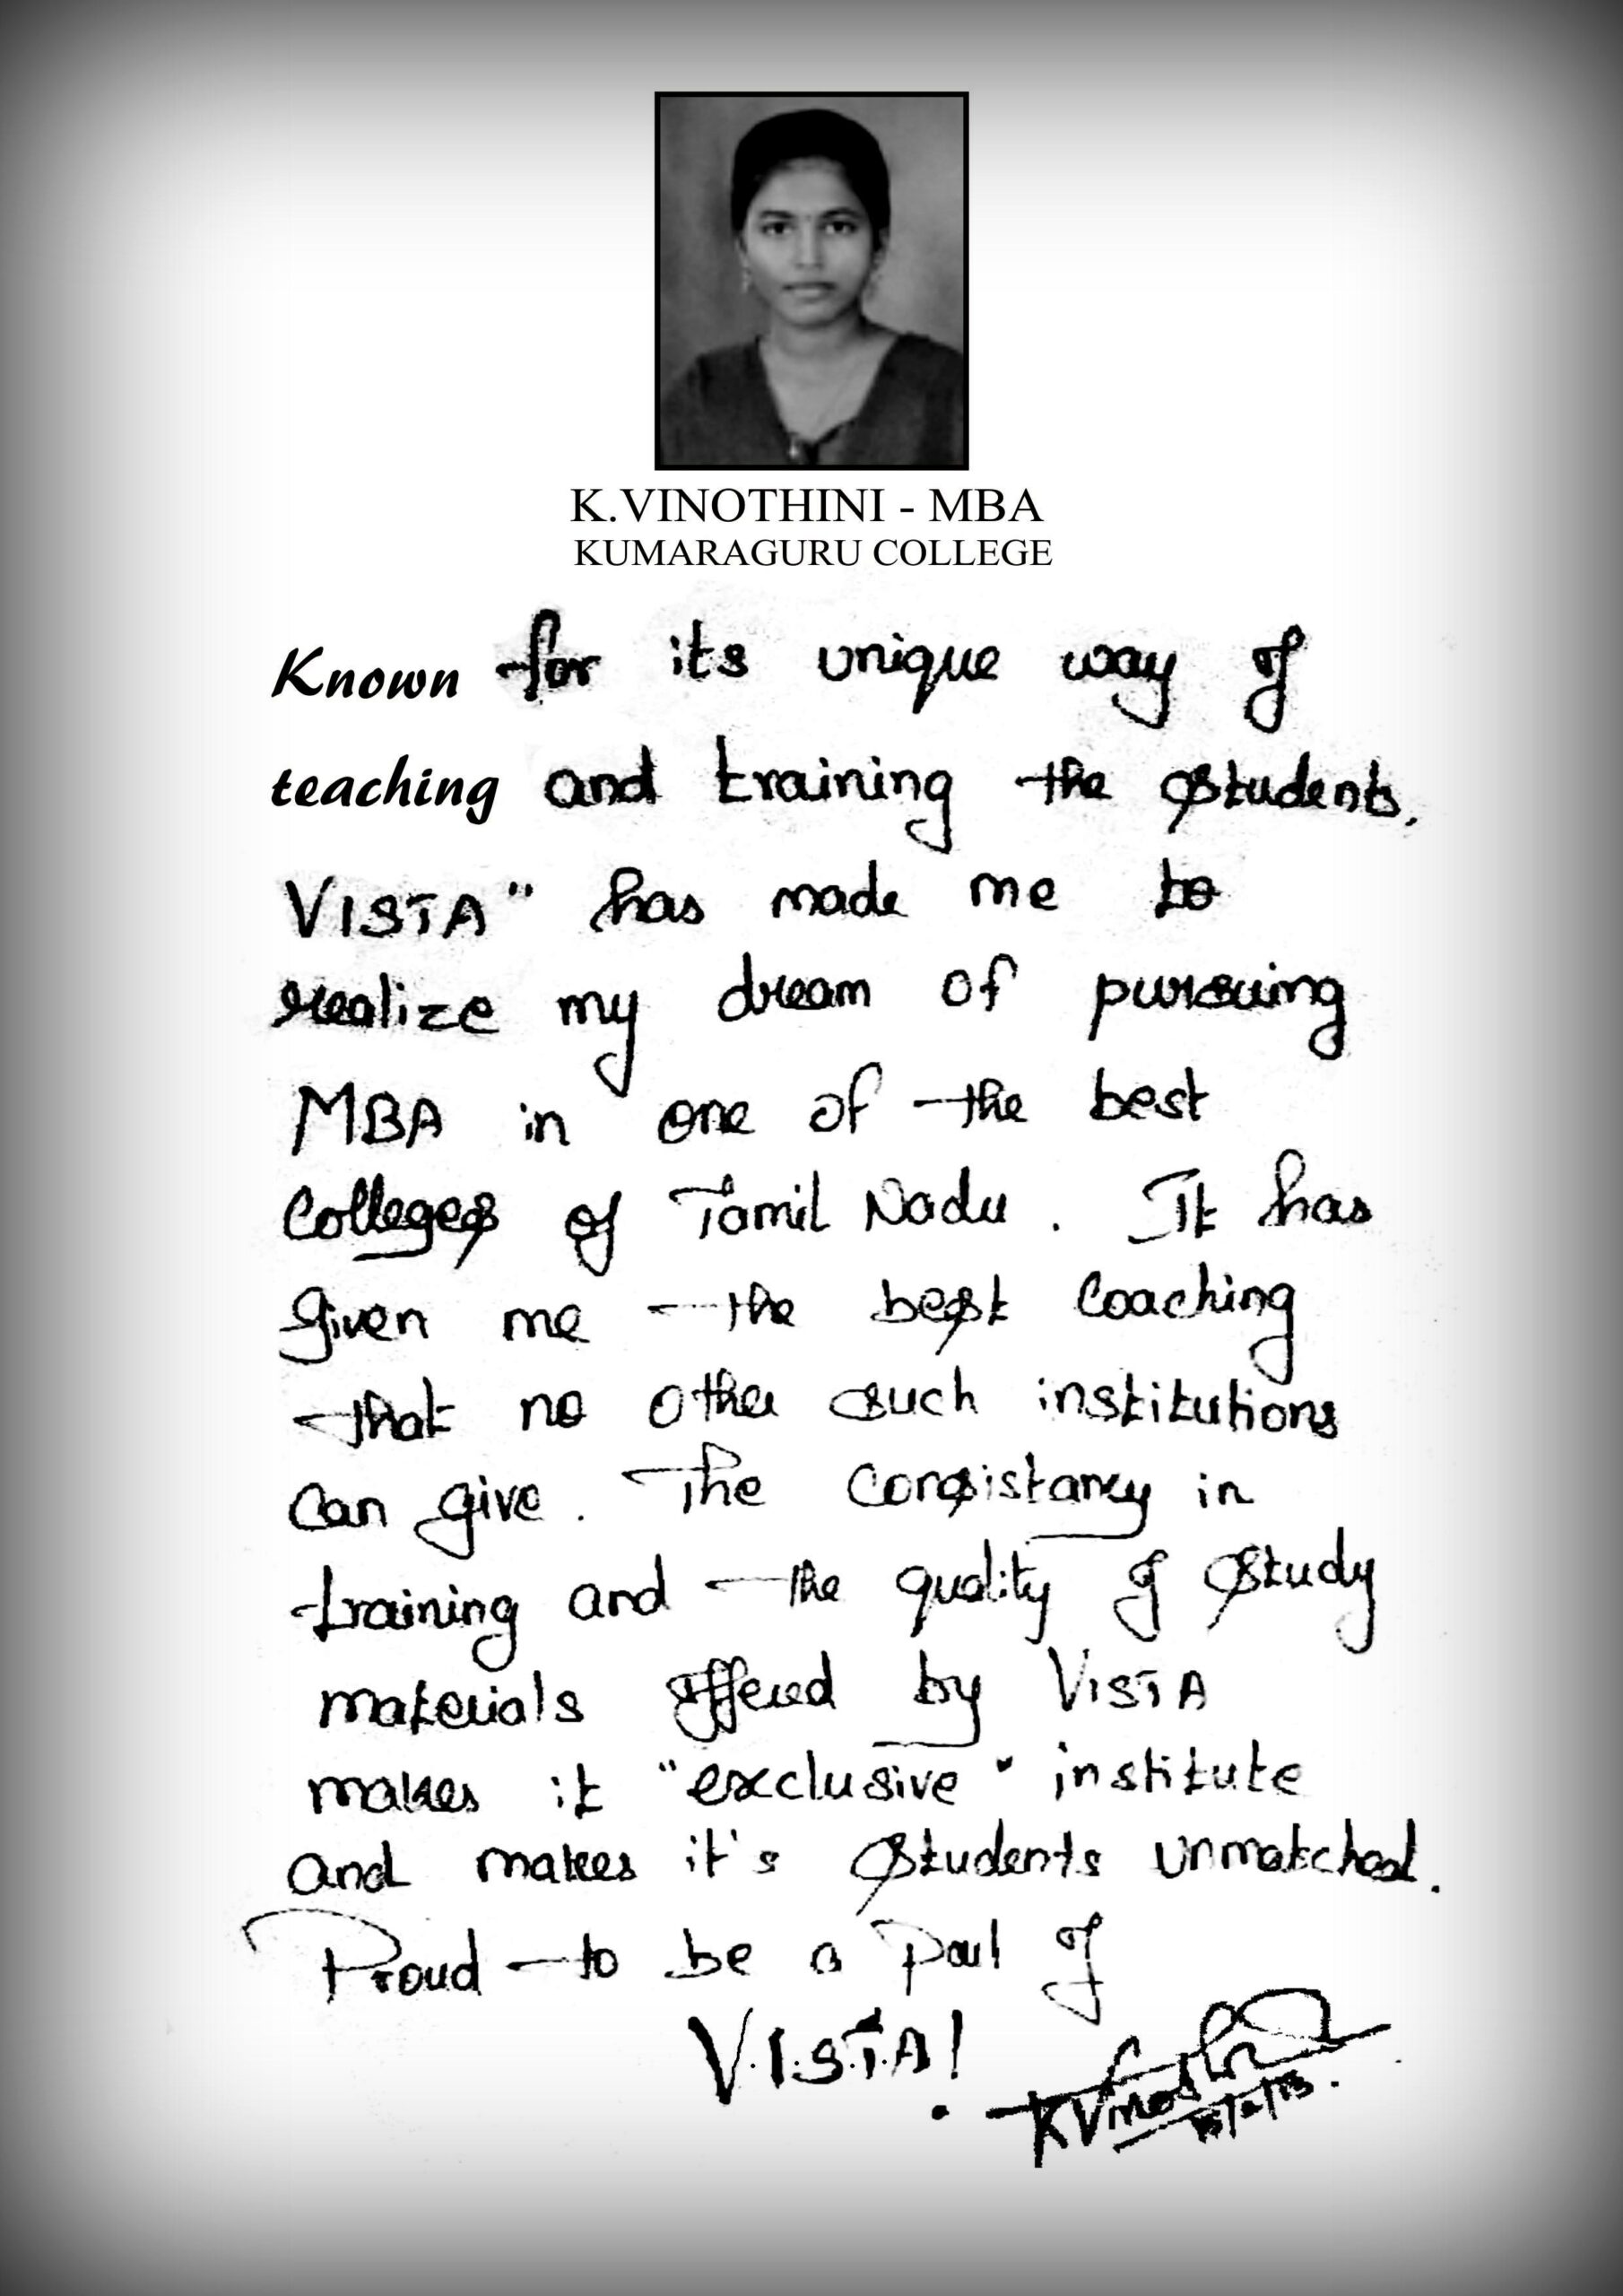 K.VINOTHINI - MBA
KUMARAGURU COLLEGE
Known for its unique way of
teaching and training the students.
VISTA" has made me to
realize my dream of pursuing
MBA in one of the best
Colleges of Tamil Nadu. It has
given me the best coaching
that no other such institutions
can give. The consistancy in
training and the quality of study
materials offered by VISTA
makes it "exclusive" institute
and makes it's students unmatched.
Proud to be a Part of
V.I.S.T.A!